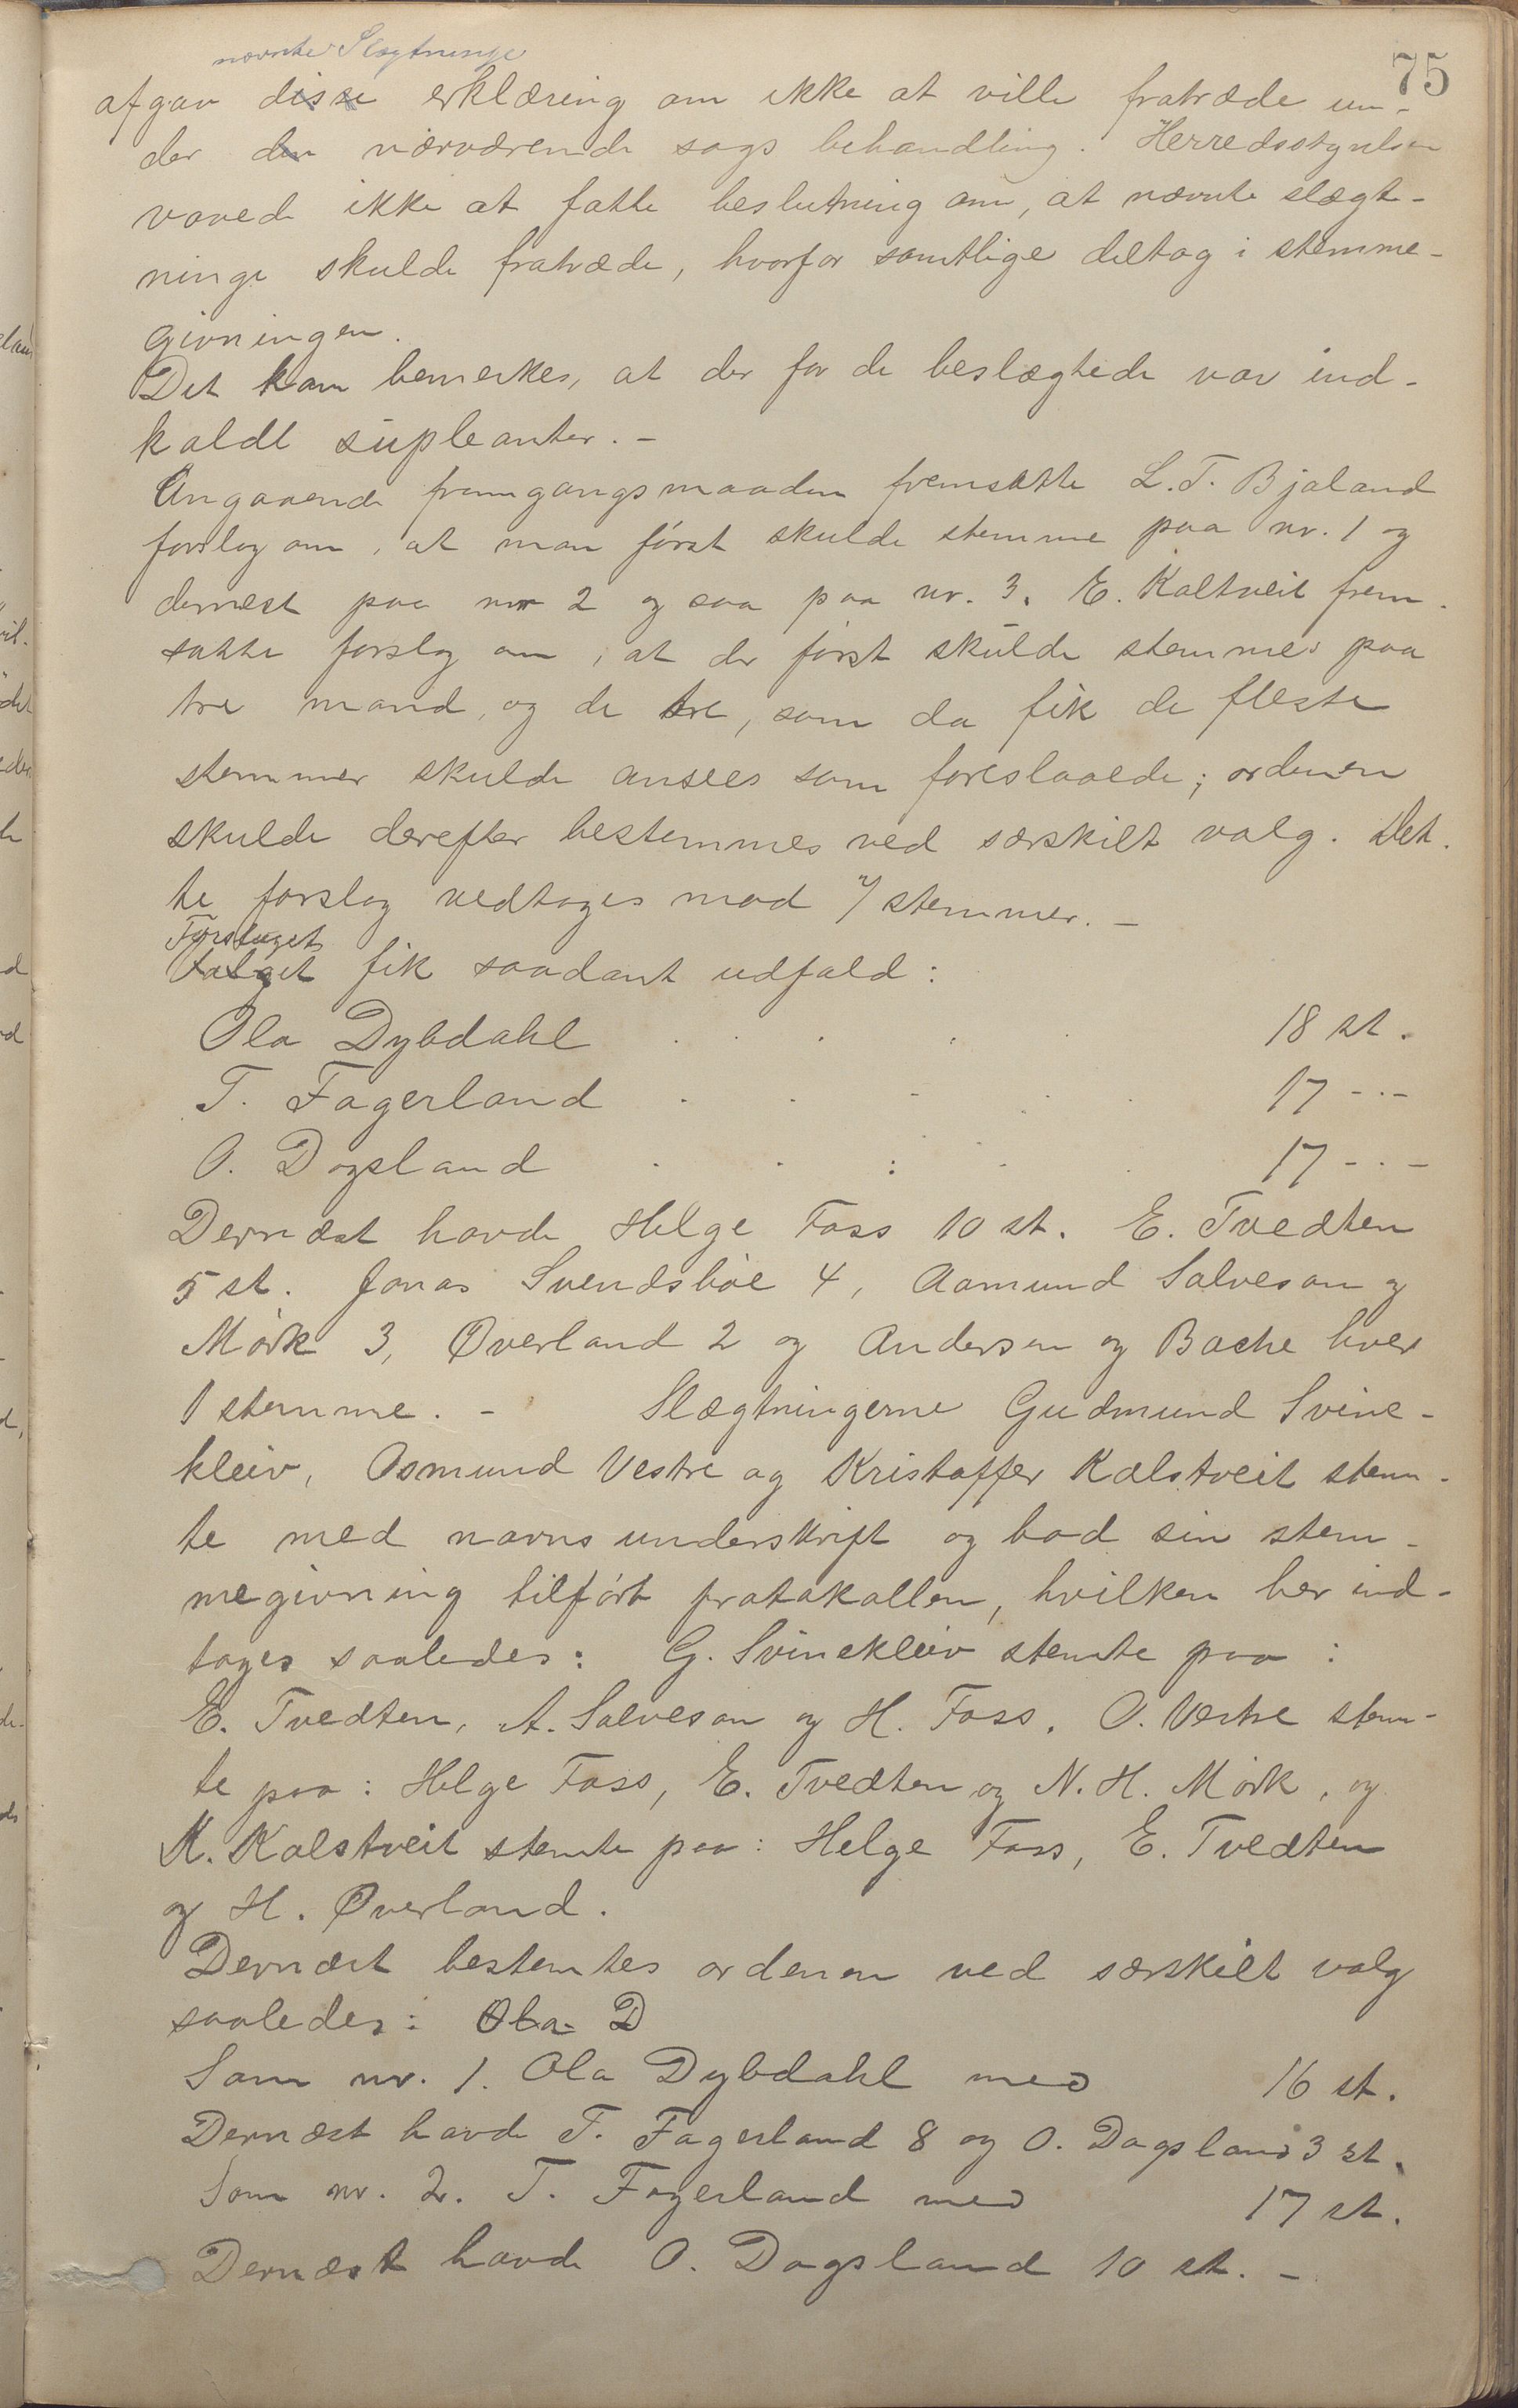 75
nævnte Slægtninge
afgav disse erklæring om ikke at ville fratræde un-
der den nærværende sags behandling. Herredsstyrelsen
vovede ikke at fatte beslutning om, at nævnte slægt-
ninge skulde fratræde, hvorfor samtlige deltog i stemme-
givningen.
Det kan bemerkes, at der for de beslægtede var ind-
kaldt supleanter. -
Angaaende fremgangsmaaden fremsatte L. T. Bjaland
forslag om, at man først skulde stemme paa nr. 1 og
dernest paa nr 2 og saa paa nr. 3. E. Kaltveit frem-
satte forslag om, at der først skulde stemmes paa
tre mand, og de tre, som da fik de fleste
stemmer skulde ansees som foreslaaede; ordenen
skulde derefter bestemmes ved særskilt valg. Det-
te forslag vedtoges mod 7 stemmer. -
Forslaget
Valget fik saadant udfald:
Ola Dybdahl . . . . 18 st.
T. Fagerland . . - . . 17 -.-
O. Dogsland . . : - . 17 -.-
Dernæst havde Helge Foss 10 st. E. Tvedten
5 st. Jonas Svendsböe 4, Aamund Salveson og
Mörk 3, Øverland 2 og Andersen og Bache hver
1 stemme. - Slægtningerne Gudmund Svine-
kleiv, Osmund Vestre og Kristoffer Kalstveit stem-
te med navns underskrift og bad sin stem-
megivning tilført protokollen, hvilken her ind-
tages saaledes: G. Svinekleiv stemte paa:
E. Tvedten, A. Salveson og H. Foss. O. Vestre stem-
te paa: Helge Foss, E. Tvedten og N. H. Mörk, og
K. Kalstveit stemte paa: Helge Foss, E. Tvedten
og H. Øverland.
Dernæst bestemtes ordenen ved særskilt valg
saaledes: Ola D
Som nr. 1. Ola Dybdahl med 16 st.
Dernæst havde T. Fagerland 8 og O. Dogsland 3 st.
Som nr. 2. T. Fagerland med 17 st.
Dernæst havde O. Dogsland 10 st. -